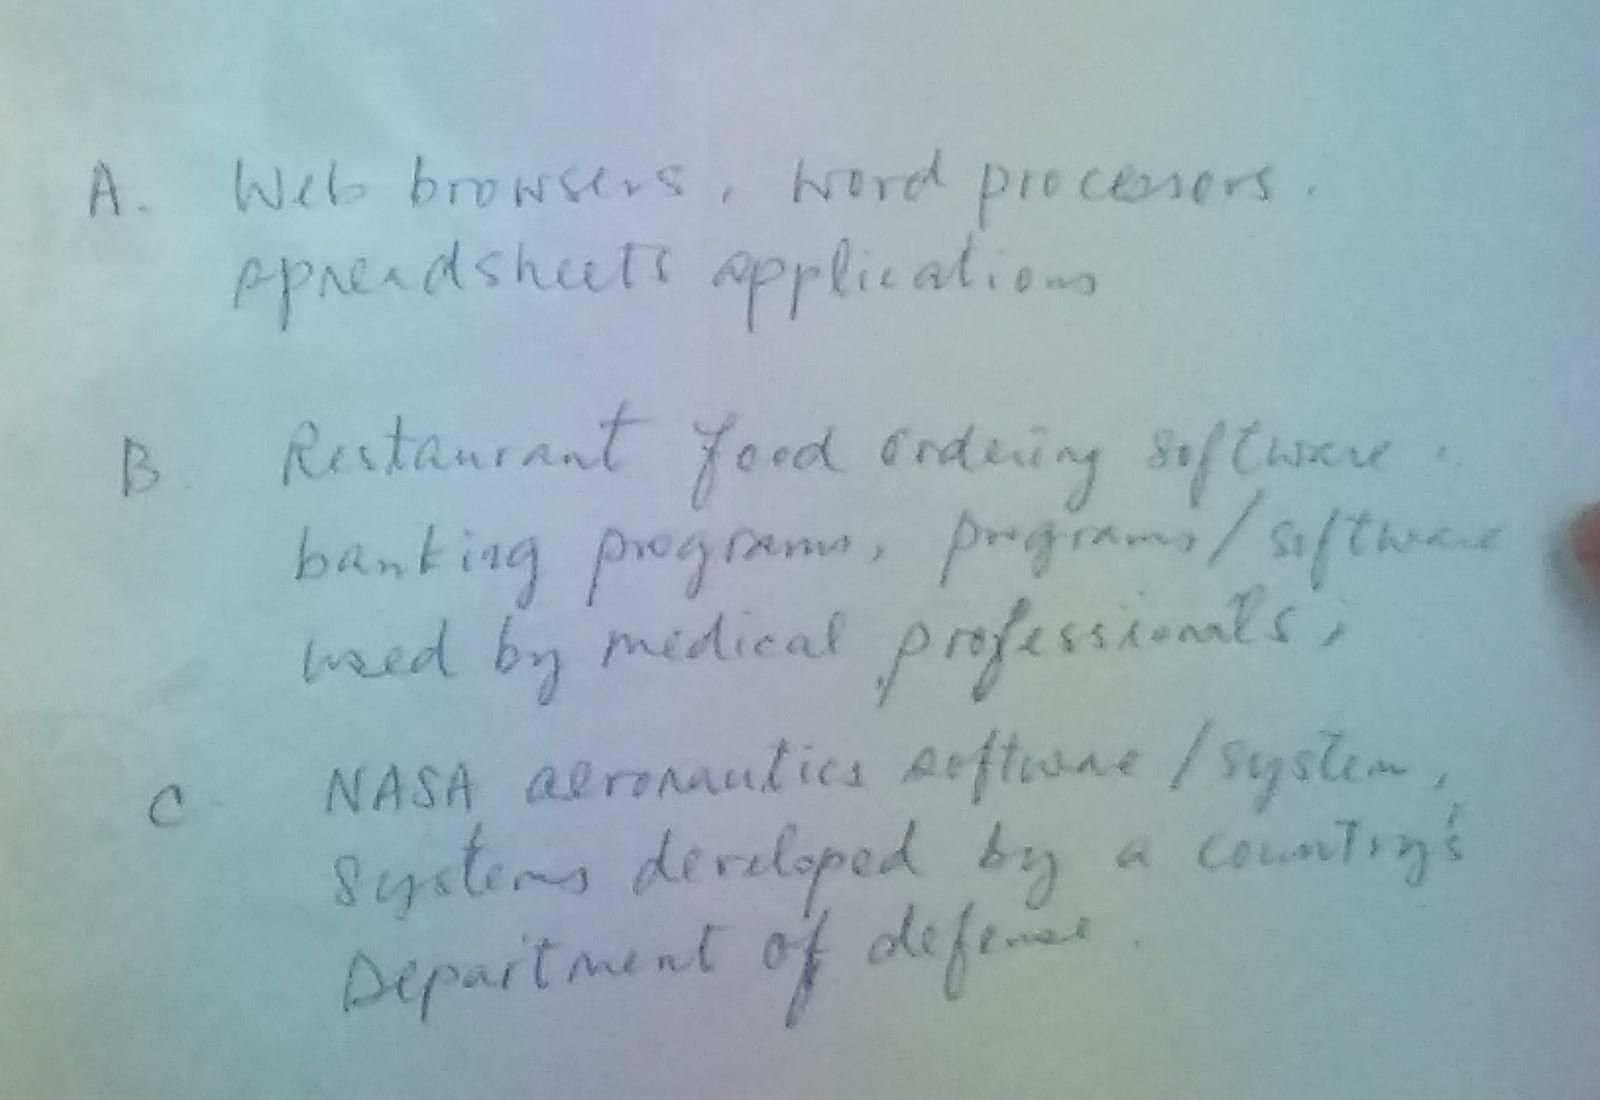 A. Web browsers, word processors.
spreadsheets applications
B. Restaurant food ordering software.
banking programs, programs/software
used by medical professionals,
C NASA aeronautics software/system,
systems developed by a country's
Department of defense.